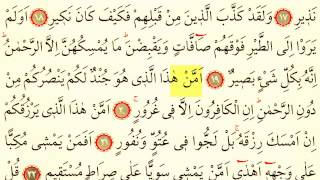 نَذِيرِ ﴿١٧﴾ وَلَقَدْ كَذَّبَ الَّذِينَ مِنْ قَبْلِهِمْ فَكَيْفَ كَانَ نَكِيرِ ﴿١٨﴾ اَوَلَمْ
يَرَوْا اِلَى الطَّيْرِ فَوْقَهُمْ صَافَّاتٍ وَيَقْبِضْنَ مَا يُمْسِكُهُنَّ اِلَّا الرَّحْمٰنُ
اِنَّهُ بِكُلِّ شَيْءٍ بَصِيرٌ ﴿١٩﴾ اَمَّنْ هٰذَا الَّذِى هُوَ جُنْدٌ لَكُمْ يَنْصُرُكُمْ مِنْ
دُونِ الرَّحْمٰنِ اِنِ الْكَافِرُونَ اِلَّا فِى غُرُورٍ ﴿٢٠﴾ اَمَّنْ هٰذَا الَّذِى يَرْزُقُكُمْ
اِنْ اَمْسَكَ رِزْقَهُ بَلْ لَجُّوا فِى عُتُوٍّ وَنُفُورٍ ﴿٢١﴾ اَفَمَنْ يَمْشِى مُكِبًّا
عَلٰى وَجْهِهِ اَهْدٰى اَمَّنْ يَمْشِى سَوِيًّا عَلٰى صِرَاطٍ مُسْتَقِيمٍ ﴿٢٢﴾ قُلْ